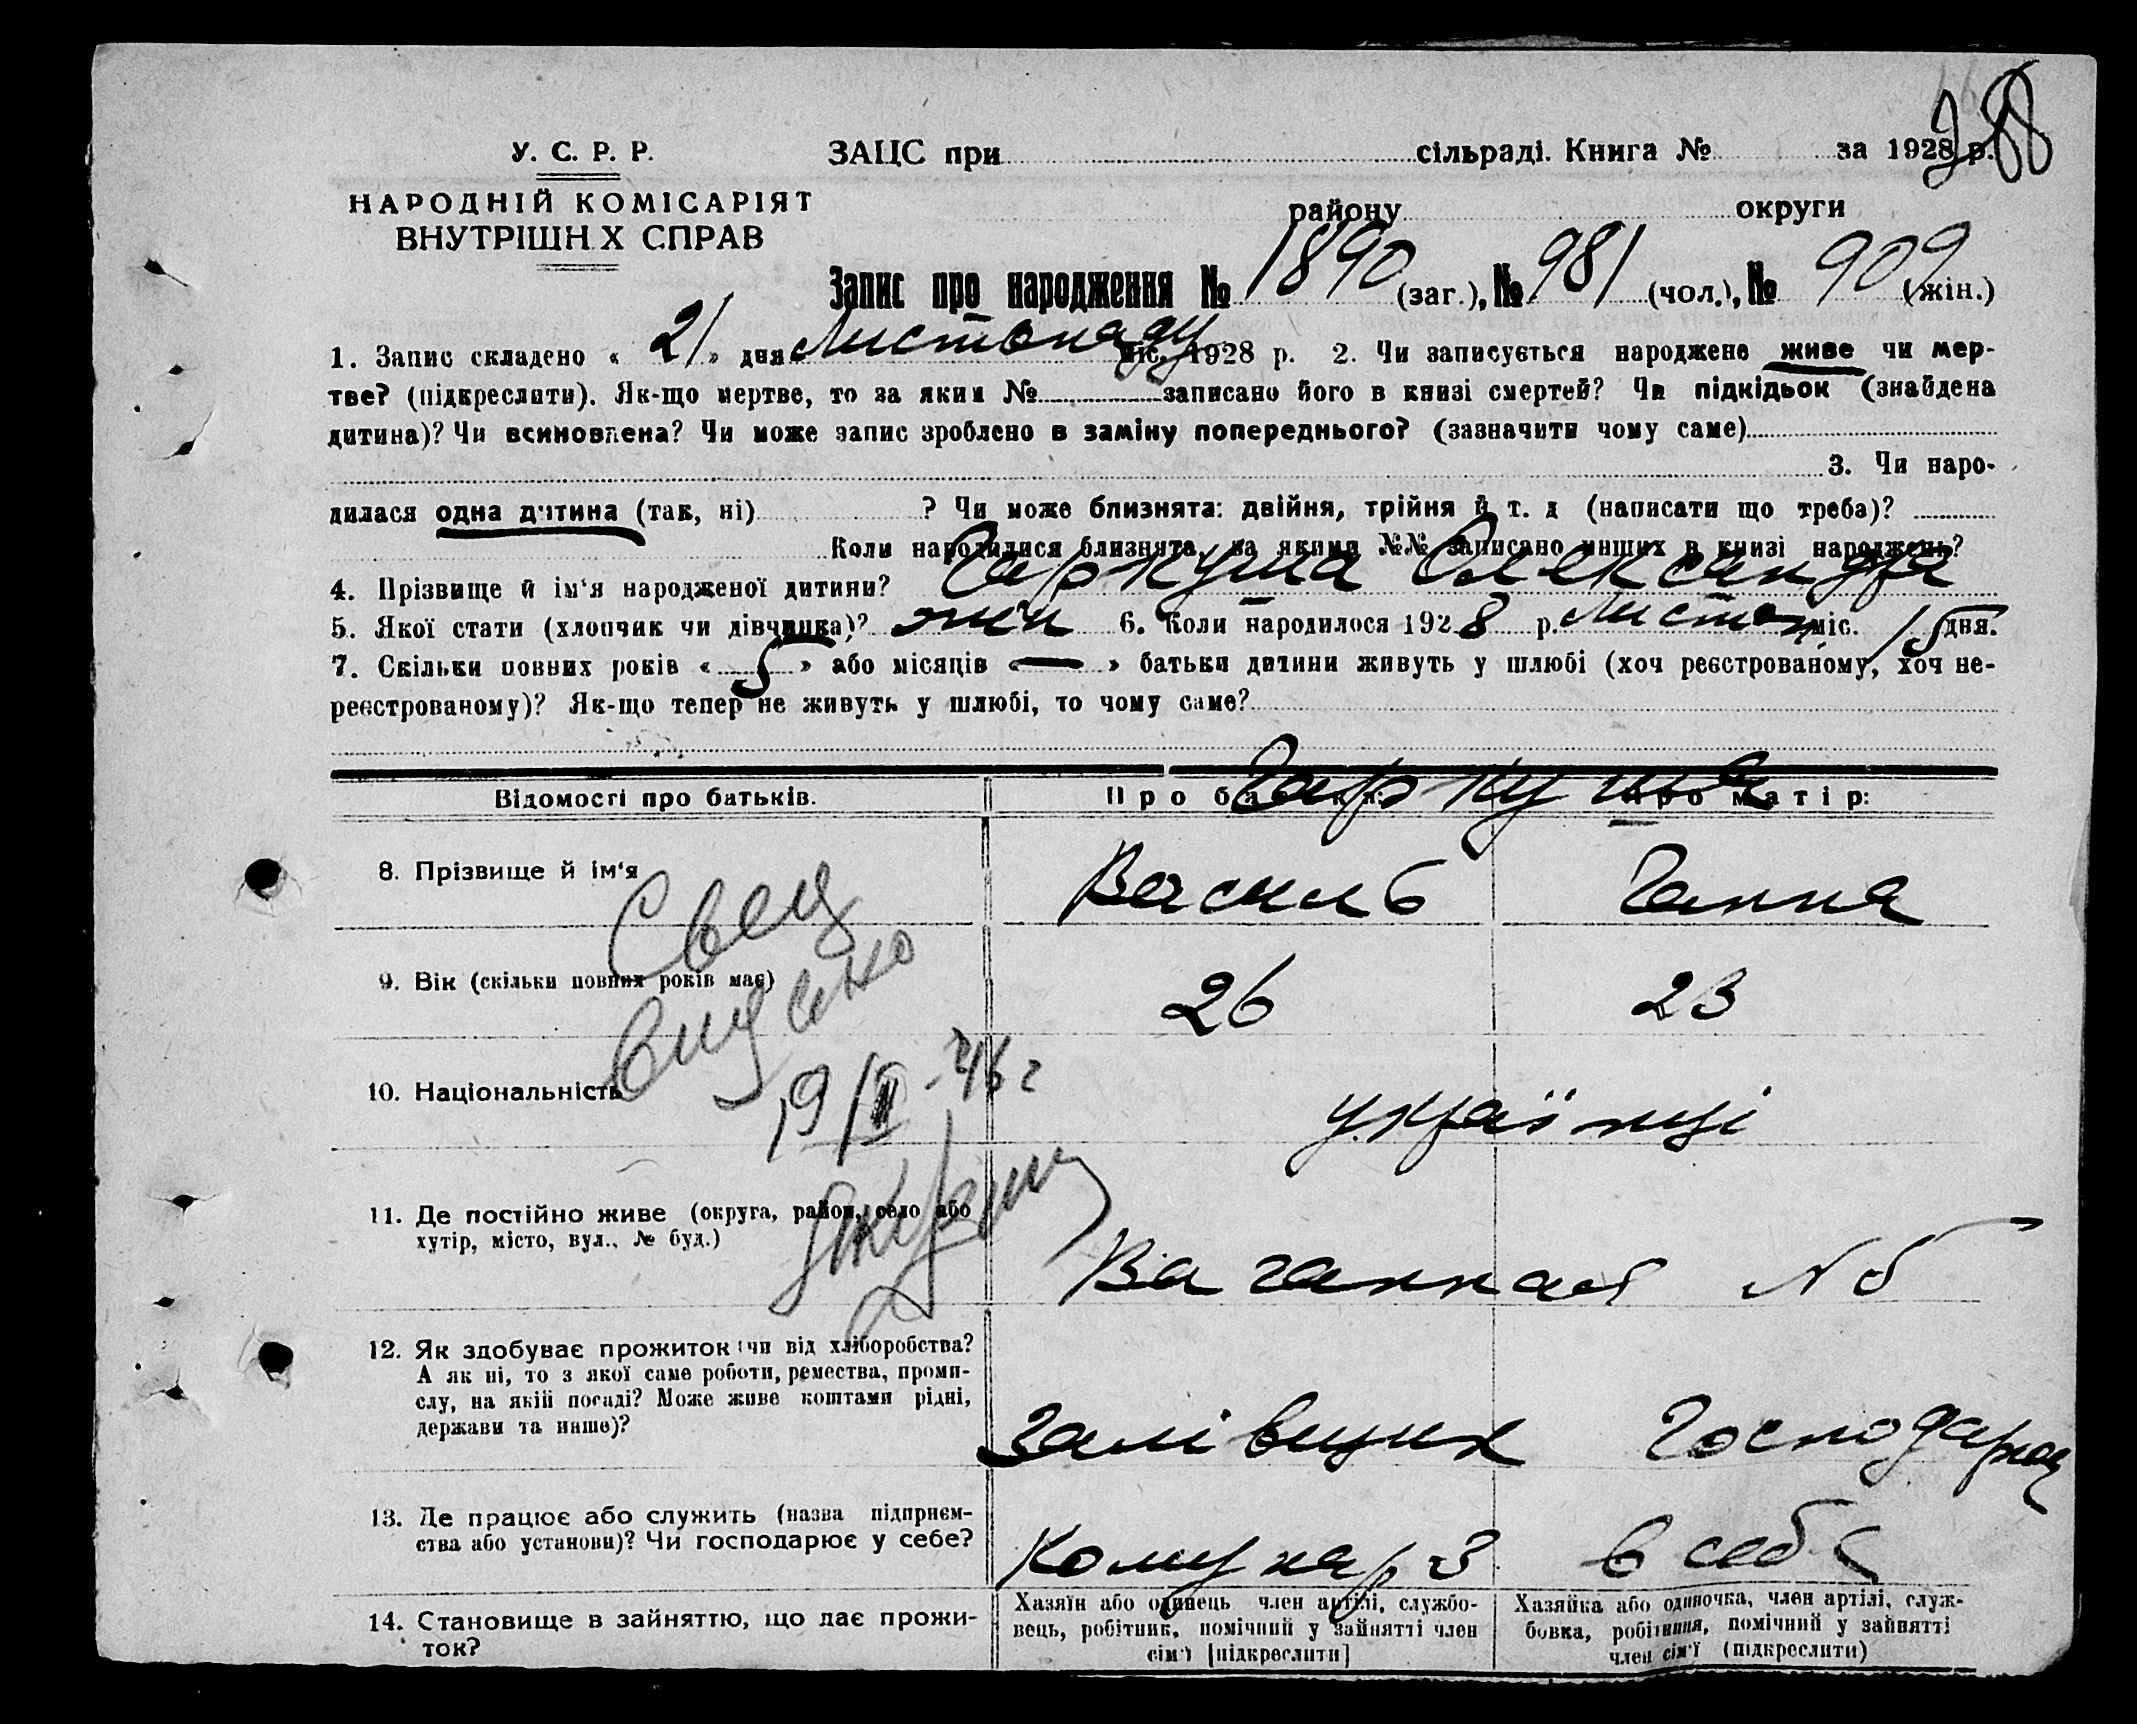 288
У. С. Р. Р.
НАРОДНІЙ КОМІСАРІЯТ
ВНУТРІШН Х СПРАВ
ЗАЦС при сільраді. Книга № за 1928 р.
району округи
Запис про народження № 1890 (заг.), № 981 (чол.), № 909 (жін.)
1. Запис складено « 21 » дня Листопаду міс. 1928 р. 2. Чи записується народжене живе чи мер-
тве? (підкреслити). Як-що мертве, то за яким № записано його в книзі смертей? Чи підкідьок (знайдена
дитина)? Чи всиновлена? Чи може запис зроблено в заміну попереднього? (зазначити чому саме)
3. Чи наро-
дилася одна дитина (так, ні) ? Чи може близнята: двійня, трійня й т. д (написати що треба)?
Коли народилися близнята, за якими №№ записано инших в книзі народжень?
4. Прізвище й ім'я народженої дитини? Гаркуша Олександра
5. Якої стати (хлопчик чи дівчинка)? жін 6. Коли народилося 1928 р. Листоп міс. 15 дня.
7. Скільки повних років « 5 » або місяців « — » батьки дитини живуть у шлюбі (хоч реєстрованому, хоч не-
реєстрованому)? Як-що тепер не живуть у шлюбі, то чому саме?
Гаркуша
Відомості про батьків. Про батька: Про матір:
8. Прізвище й ім'я Василь Ганна
9. Вік (скільки повних років має) 26 23
Свед
видано
19/II-46 г
10. Національність українці
11. Де постійно живе (округа, район, село або
хутір, місто, вул., № буд.) № 5
12. Як здобуває прожиток (чи від хліборобства?
А як ні, то з якої саме роботи, ремества, проми-
слу, на якій посаді? Може живе коштами рідні,
держави та инше)?
Залівщик Господарка
13. Де працює або служить (назва підприєм-
ства або установи)? Чи господарює у себе?
Комунар З в себе
14. Становище в зайняттю, що дає прожи-
ток?
Хазяїн або одинець член артілі, службо-
вець, робітник, помічний у зайнятті член
сім'ї [підкреслити]
Хазяйка або одиночка, член артілі, служ-
бовка, робітниця, помічний у зайнятті
член сім'ї (підкреслити)